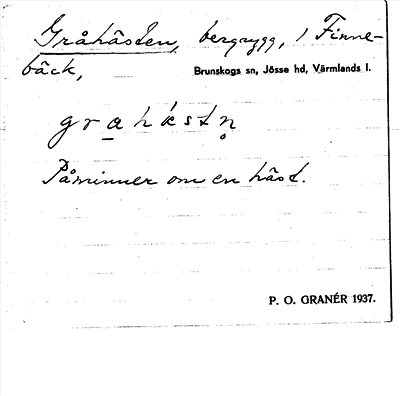 Gråhästen, bergrygg, i Finne-
bäck,
Brunskogs sn, Jösse hd, Värmlands l.
Påminner om en häst.
P. O. GRANÉR 1937.